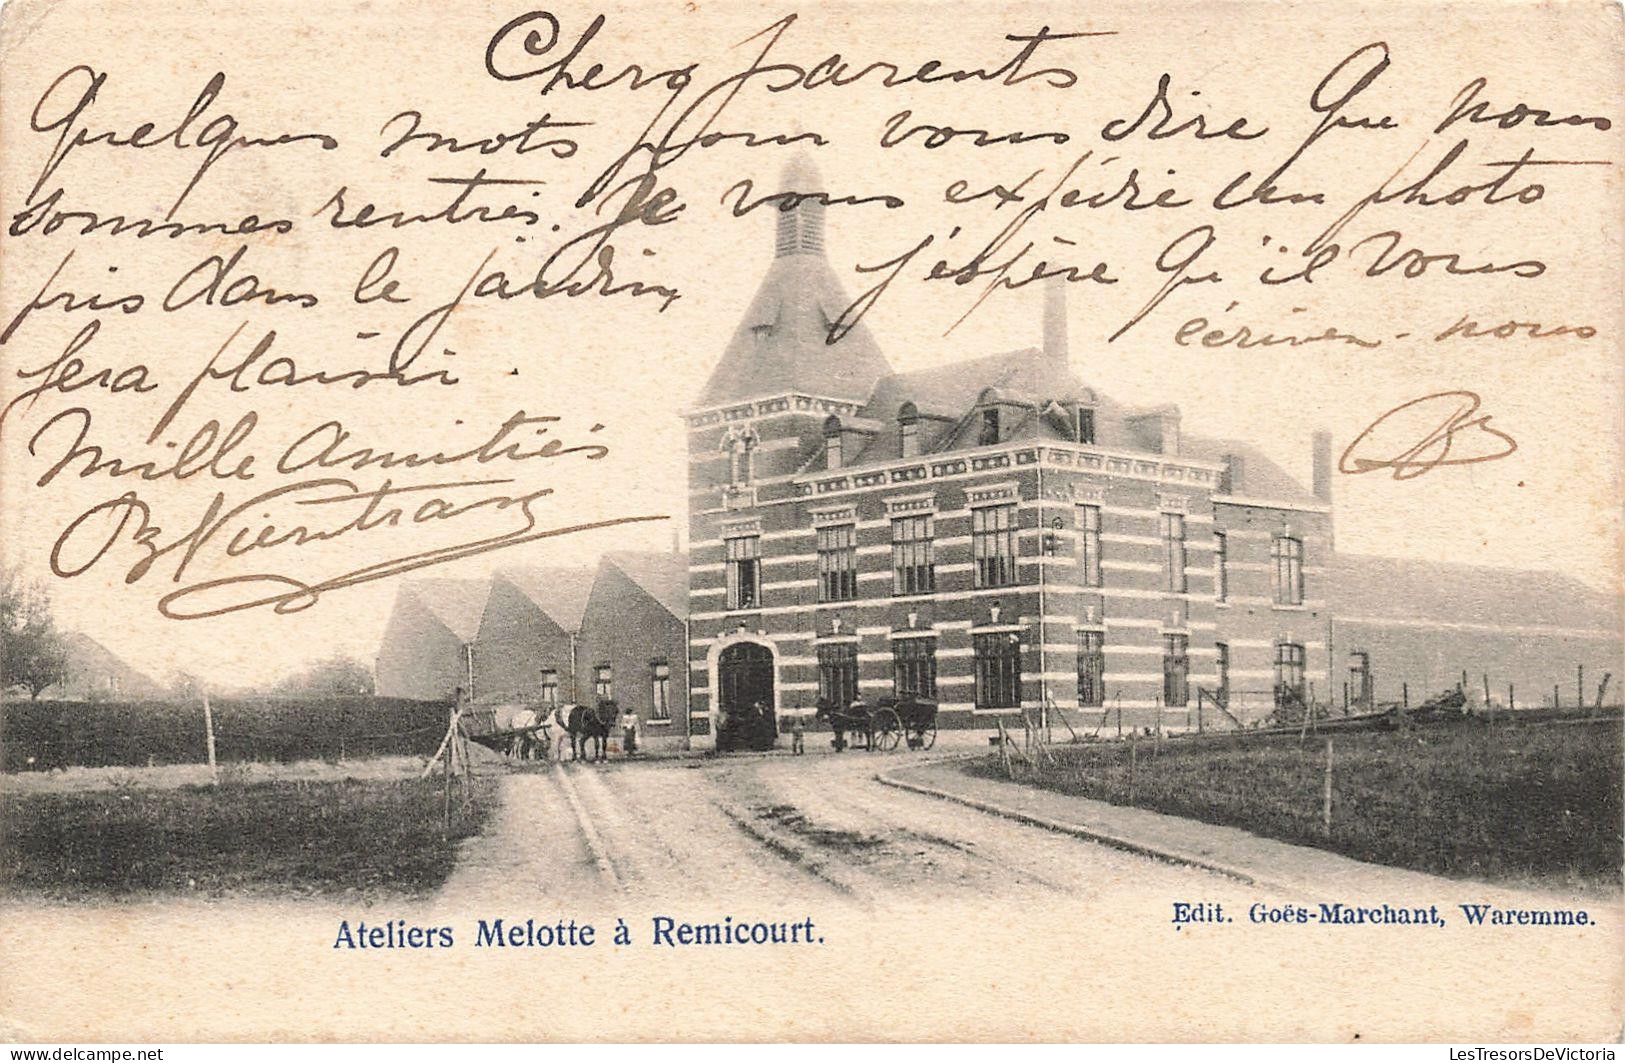 Chers parents
Quelques mots pour vous dire Que nous
sommes rentrés. Je vous expédie un photo
pris dans le jardin, j'éspère Qu'il vous
fera plaisir.
écriven-nous
Mille Amitiés
Ateliers Melotte à Remicourt.
Edit. Goës-Marchant, Waremme.
delcampe.net
LesTresorsDeVictoria